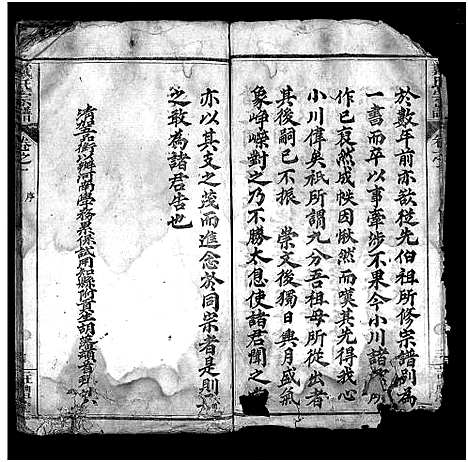 於數年前亦欲從先伯祖所修宗譜別為
一書而卒以事牽涉不果今小川諸
作已裒然成帙因愀然而嘆其先得我心
小川偉矣祇所謂九分吾祖母所從出者
其後嗣已不振 崇文後獨日興月盛氣
象崢嶸對之乃不勝太息使諸君聞之
亦以其支之茂而進念於同宗者是則
之敢為諸君告也
河南學務累保試用知縣附貢生胡
氏宗譜
卷之一
序